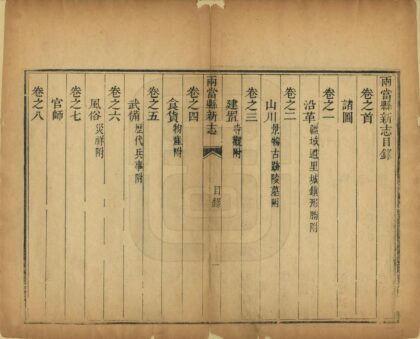 兩當縣新志目錄
卷之首
諸圖
卷之一
沿革疆域道里城鎮形勝附
卷之二
山川景物古蹟陵墓附
卷之三
建置寺觀附
兩當縣新志
目錄
一
卷之四
食貨物產附
卷之五
武備歷代兵事附
卷之六
風俗災祥附
卷之七
官師
卷之八